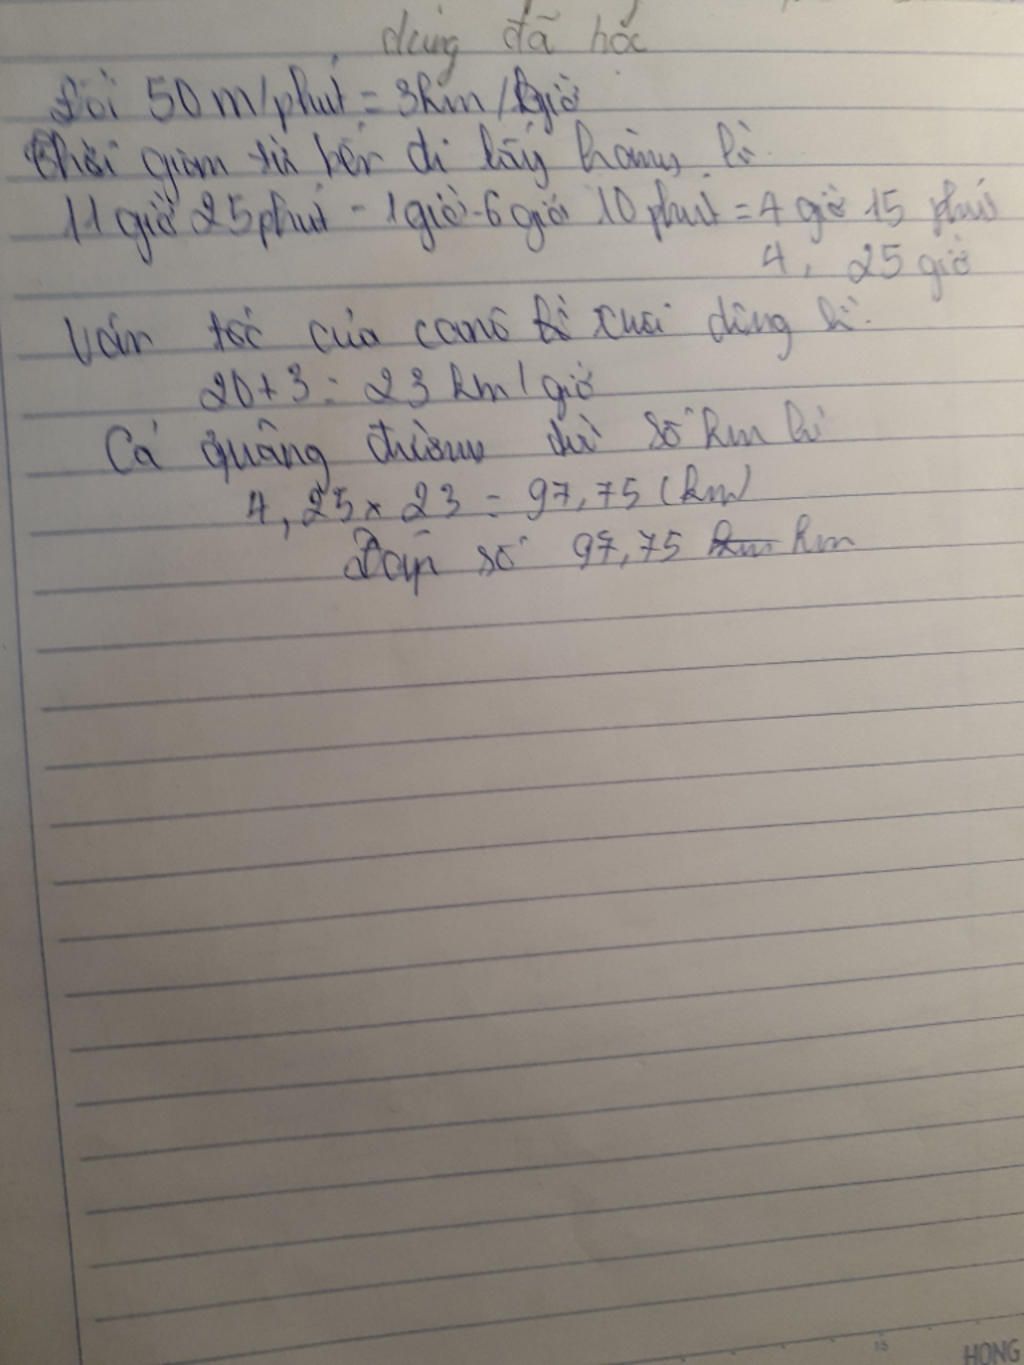 dùng đã học
Đổi 50 m/phút = 3km/giờ
Thời gian từ bến đi lấy hàng là
11 giờ 25 phút - 1 giờ - 6 giờ 10 phút = 4 giờ 15 phút
4, 25 giờ
Vận tốc của canô xuôi dòng là:
20 + 3 = 23 km/giờ
Cả quãng đường số km là
4,25 x 23 = 97,75 (km)
Đáp số 97,75 km
HONG